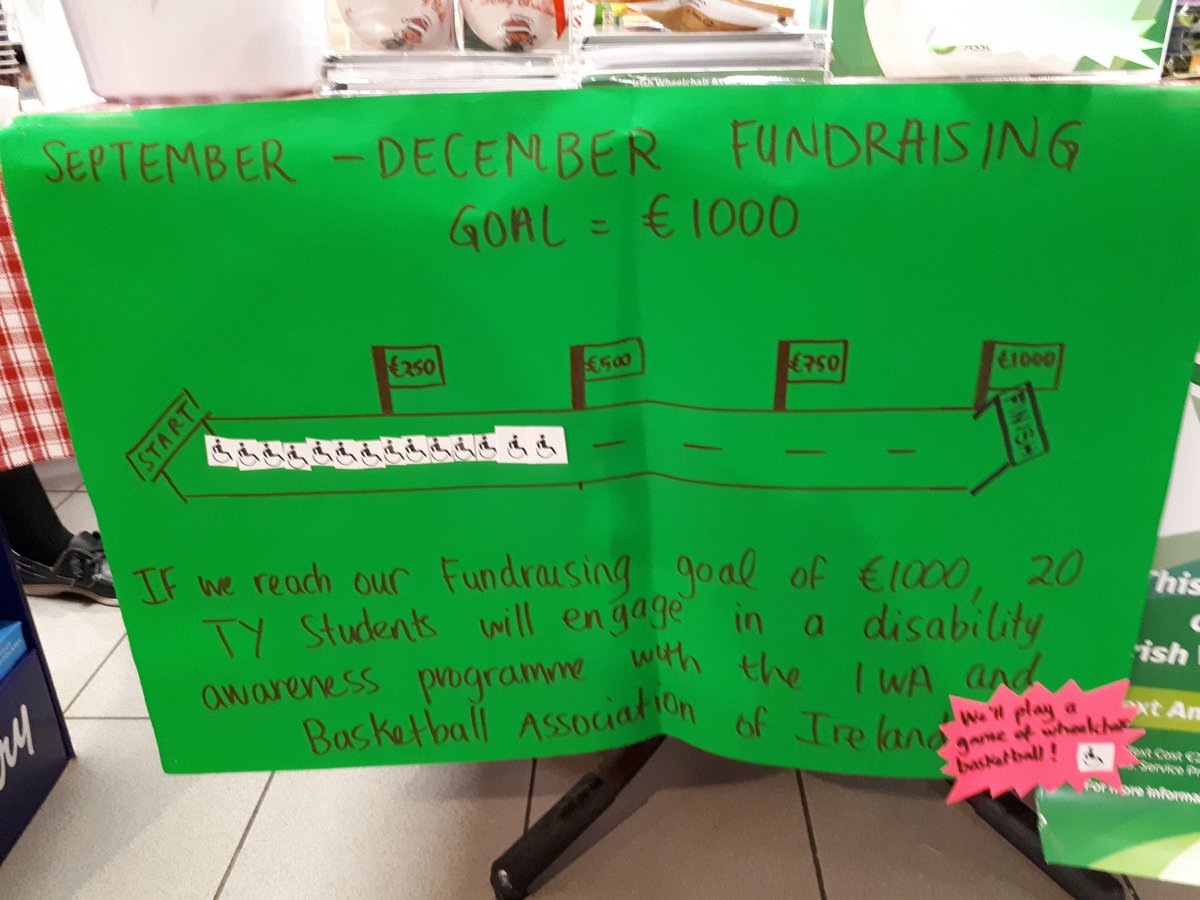 Irish Wheelchair Asso
SEPTEMBER - DECEMBER FUNDRAISING
GOAL = €1000
€250
€500
€750
€1000
START
FINISH
IF we reach our Fundraising goal of €1000, 20
TY Students will engage in a disability
awareness programme with the IWA and
Basketball Association of Ireland
We'll play a
game of wheelchair
basketball!
This
rish
ext Am
ext Cost €2
Service Pr
For more informa